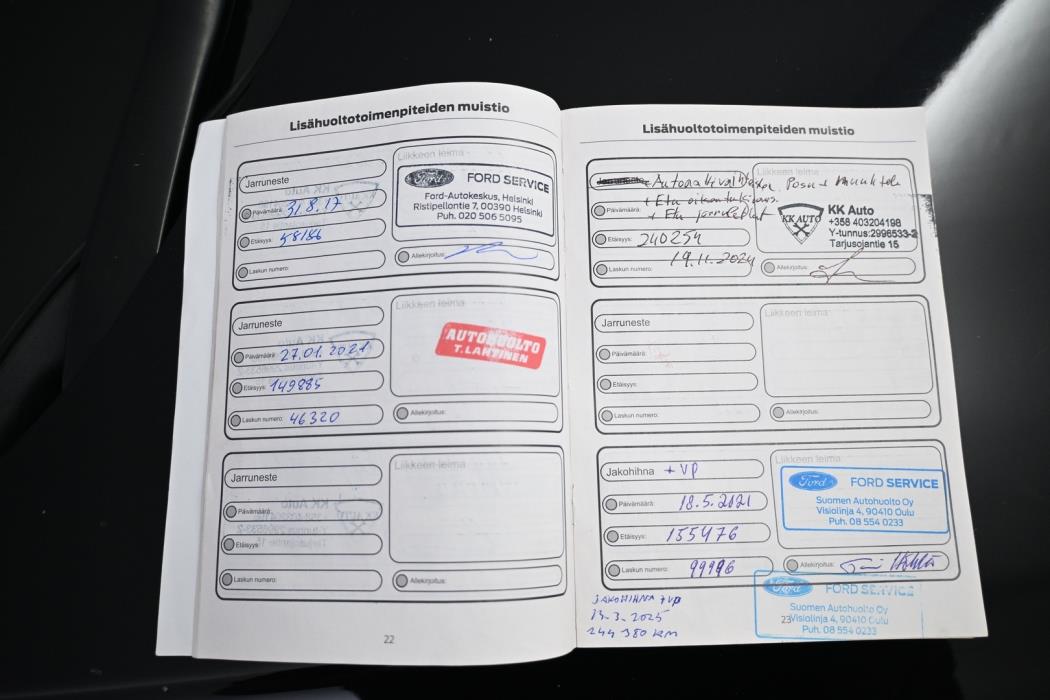 Lisähuoltotoimenpiteiden muistio
Jarruneste
Päivämäärä: 31.8.17
Etäisyys: 58186
Laskun numero:
Liikkeen leima
Ford FORD SERVICE
Ford-Autokeskus, Helsinki
Ristipellontie 7, 00390 Helsinki
Puh. 020 506 5095
Allekirjoitus:
Jarruneste
Päivämäärä: 27.01.2021
Etäisyys: 149885
Laskun numero: 46320
Liikkeen leima
AUTOHUOLTO
T.LAHTINEN
Allekirjoitus:
Jarruneste
Päivämäärä:
Etäisyys:
Laskun numero:
Liikkeen leima
Allekirjoitus:
22
Lisähuoltotoimenpiteiden muistio
Jarruneste
Päivämäärä:
+ Etu jarrulevyt
Etäisyys: 240254
Laskun numero: 19.11.2024
Liikkeen leima
KK AUTO
KK Auto
+358 403204198
Y-tunnus:2996533-2
Tarjusojantie 15
Allekirjoitus:
Jarruneste
Päivämäärä:
Etäisyys:
Laskun numero:
Liikkeen leima:
Allekirjoitus:
Jakohihna + VP
Päivämäärä: 18.5.2021
Etäisyys: 155476
Laskun numero:
Liikkeen leima:
Ford FORD SERVICE
Suomen Autohuolto Oy
Visiolinja 4, 90410 Oulu
Puh. 08 554 0233
Allekirjoitus:
JAKOHIHNA + VP
13.3.2025
244 380 KM
Ford FORD SERVICE
Suomen Autohuolto Oy
Visiolinja 4, 90410 Oulu
Puh. 08 554 0233
23